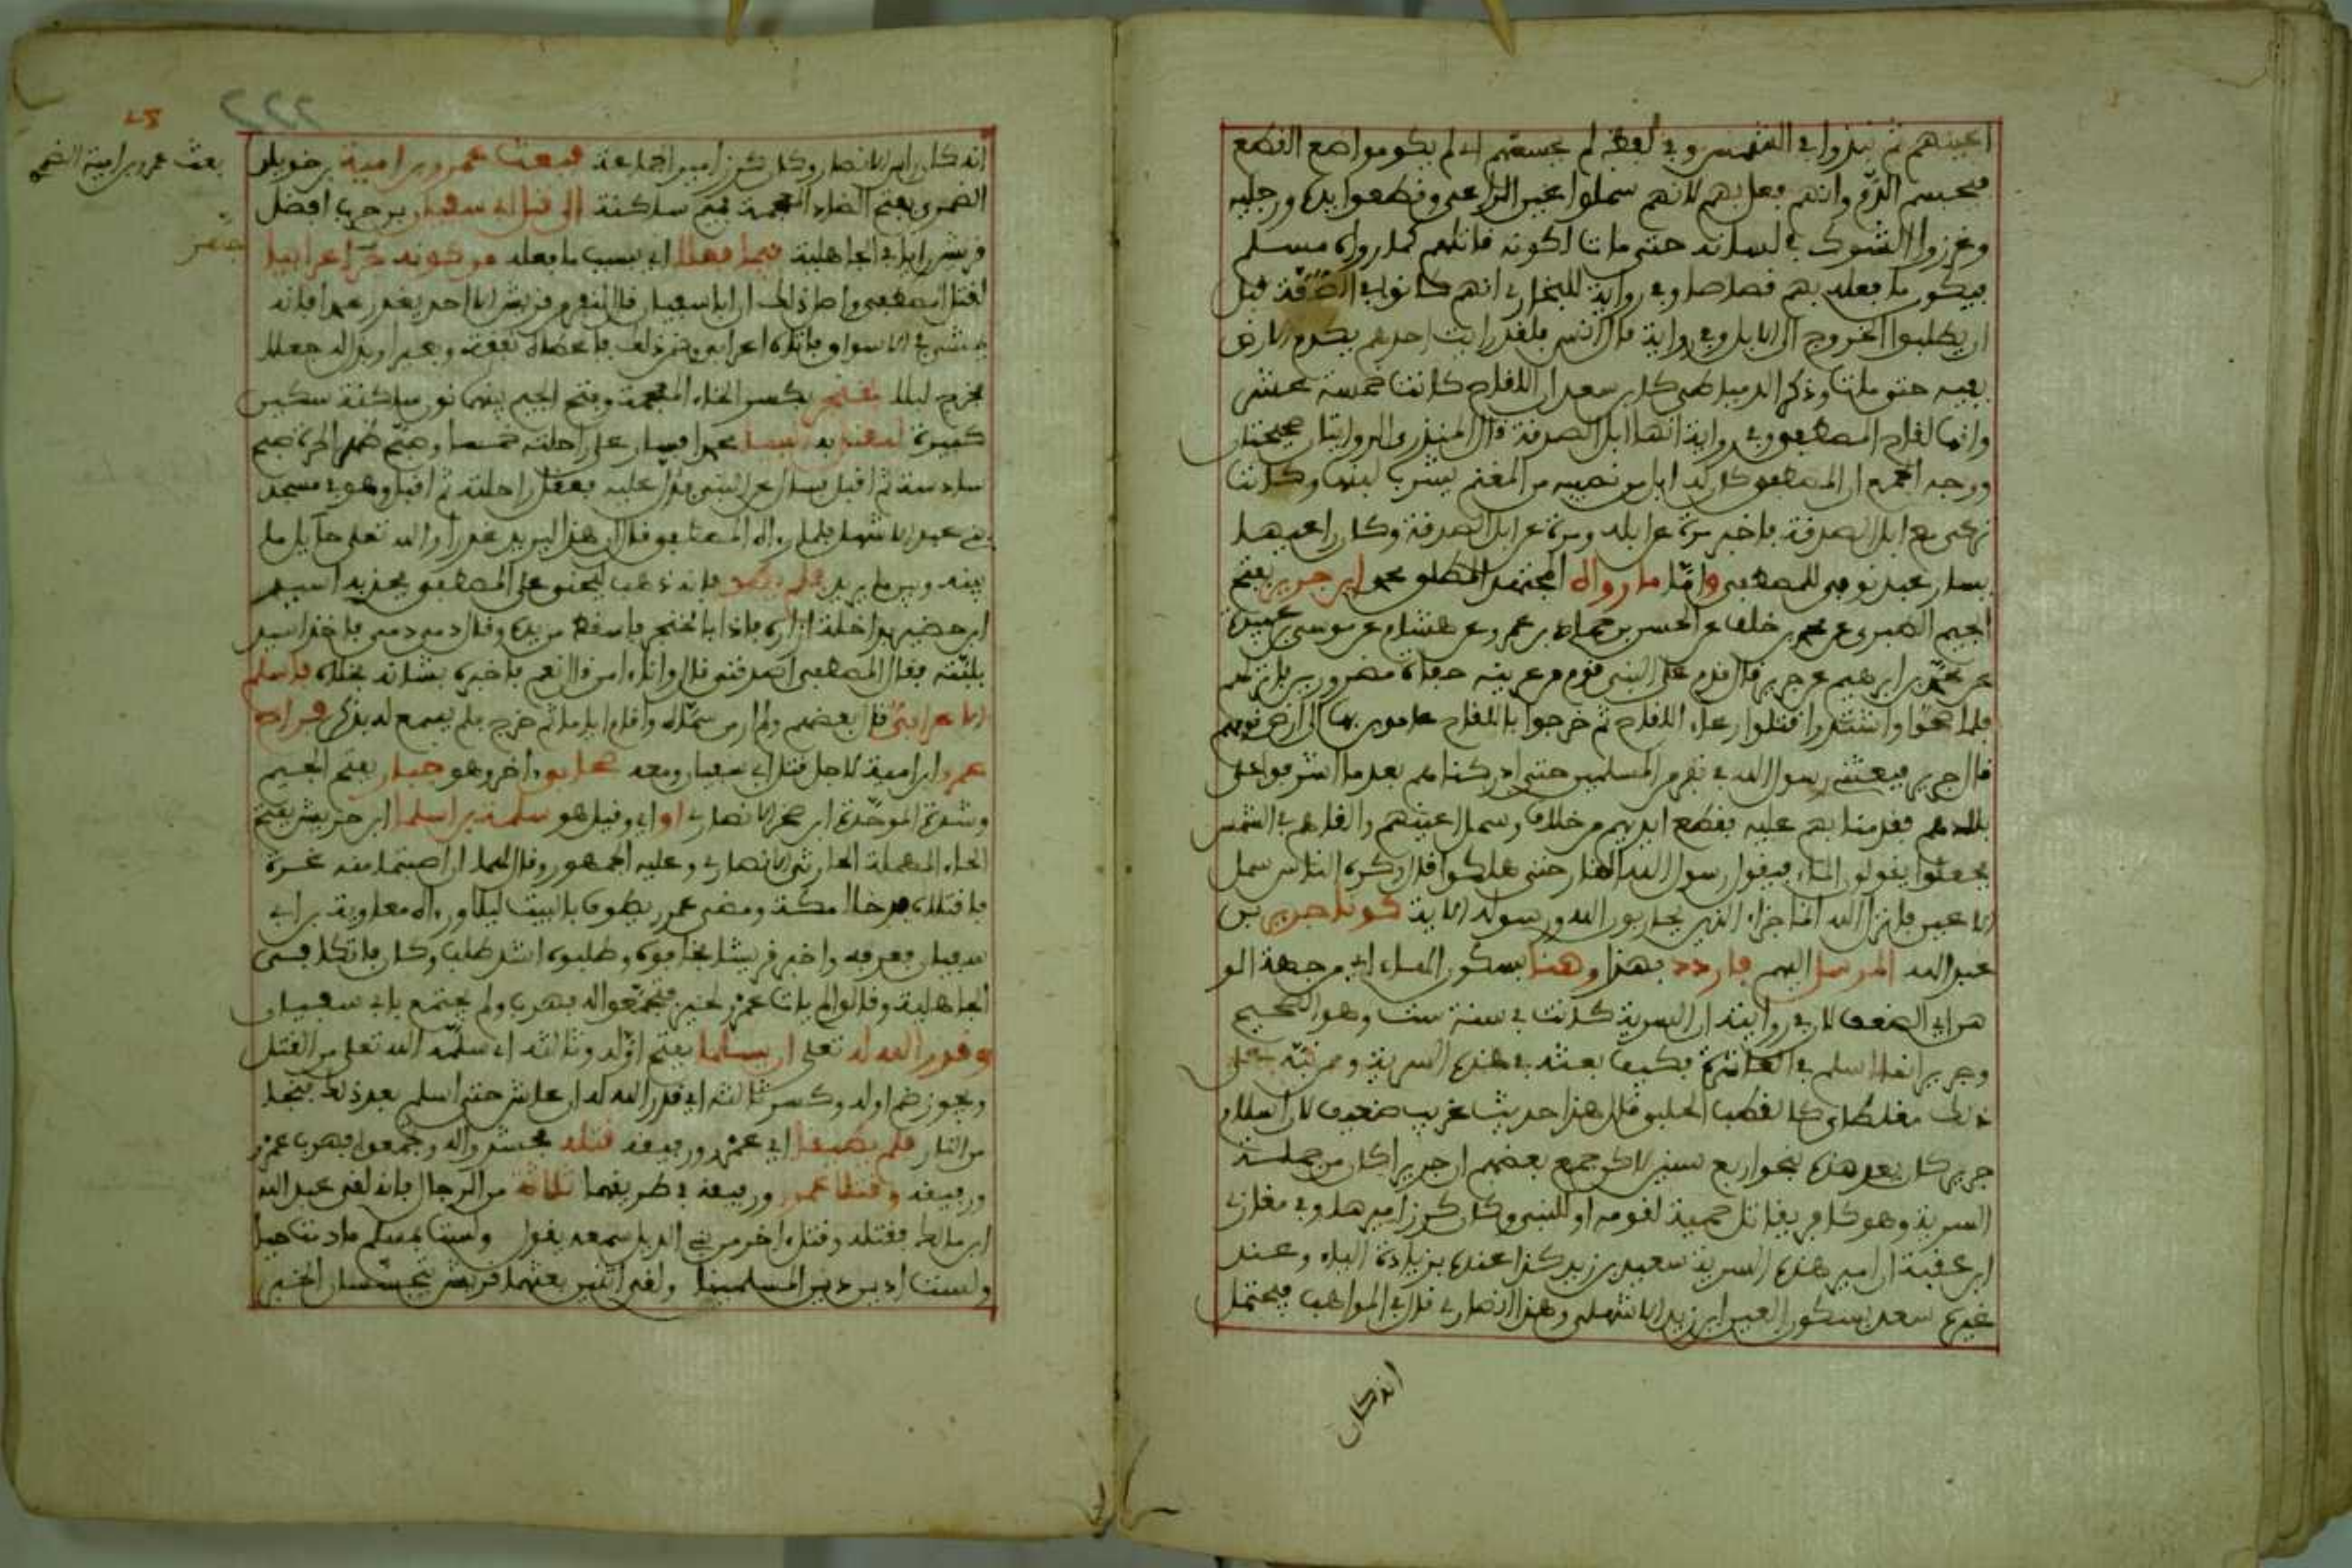 اعينهم ثم نبذوا في الشمس وفي لفظ لم يحسمهم اي لم يكو مواضع القطع
فيحبسم الدم وانه فعل بهم لانهم سملوا اعين الراعي وقطعوا يده ورجليه
وغرزوا الشوك في لسانه حتى مات لكونه قاتلهم كما رواه مسلم
فيكون ما فعله بهم قصاصا وفي رواية للبخاري انهم كانوا في الصفة قبل
ان يطلبوا الخروج الى الابل وفي رواية قال انس فلقد رايت احدهم يكدم الارض
بفيه حتى ماتوا وذكر الدمياطي كابن سعد ان اللقاح كانت خمسة عشر
وانها لقاح المصطفى وفي رواية انها ابل الصدقة قال المنذري الروايتان صحيحتان
ووجه الجمع ان المصطفى كان له ابل من نصيبه من المغنم يشرب لبنها وكانت
ترعى مع ابل الصدقة فاخبر مرة عن ابله ومرة عن ابل الصدقة وكان راعيها
يسار عبد نوبي للمصطفى واما ما رواه المجتهد المطلق محمد ابن جرير بفتح
الجيم الطبري عن محمد بن خلف عن الحسن بن حماد عن عمرو بن هشام عن موسى بن عبيدة
عن محمد بن ابرهيم عن جرير قال قدم على النبي قوم من عرينة حفاة مضرورين فانزلهم
فلما صحوا واشتدوا قتلوا رعاء اللقاح ثم خرجوا باللقاح عامدين بها الى ارض قومهم
قال جرير فبعثني رسول الله في نفر من المسلمين حتى ادركناهم بعد ما اشرفوا على
بلادهم فقدمنا بهم عليه فقطع ايديهم من خلاف وسمل اعينهم والقاهم في الشمس
فجعلوا يقولون الماء فيقول رسول الله النار حتى هلكوا قال وكره الناس سمل
الاعين فانزل الله انما جزاء الذين يحاربون الله ورسوله الاية كون جرير بن
عبد الله المرسل اليهم فاردد بهذا وهنا بسكون الهاء اي من جهة الو
هن اي الضعف لان في روايته ان السرية كانت في سنة ست وهو الصحيح
وجرير انما اسلم في العاشرة فكيف بعثه في هذه السرية وممن نبه على
ذلك مغلطاي كالقطب الحلبي قال هذا حديث غريب ضعيف لان اسلام
جرير كان بعد هذه بنحو اربع سنين لكن جمع بعضهم ان جريرا كان من جملة
السرية وهو كافر يقاتل حمية لقومه او للنبي وكان كرز اميرها وفي مغازي
ابن عقبة ان امير هذه السرية سعيد بن زيد كذا عنده بزيادة الياء وعند
غيره سعد بسكون العين ابن زيد الاشهلي وهذا انصاري قال في المواهب فيحتمل
انه كان
222
بعث عمرو بن امية الضمري
انه كان راس الانصار وكان كرز امير الجماعة فبعث عمرو بن امية بن خويلد
الضمري بفتح الضاد المعجمة فميم ساكنة الى قتال ابي سفيان بن حرب افضل
قريش رايا في الجاهلية فيما فعلا اي بسبب ما فعله من كونه جر اعرابيا
لقتل المصطفى واصل ذلك ان ابا سفيان قال لنفر من قريش الا احد يغدر محمدا فانه
يمشي في الاسواق فاتاه اعرابي وضمن ذلك فاعطاه نفقة وبعيرا وبذل له جعلا
فخرج ليلا بخنجر بكسر الخاء المعجمة وفتح الجيم بينهما نون ساكنة سكين
كبيرة ليغتال به محمدا فسار على راحلته خمسا وصبح ظهر الحرة صبح
سادسة ثم اقبل يسال عن النبي فدل عليه فعقل راحلته ثم اقبل وهو في مسجد
بني عبد الاشهل فلما راه المصطفى قال ان هذا ليريد غدرا والله تعالى حايل ما
بينه وبين ما يريد فانه ذهب ليجني على المصطفى فجذبه اسيد
ابن حضير بداخلة ازاره فاذا بالخنجر فاسقط من يده وقال دمي دمي فاخذ اسيد
بلبته فقال المصطفى اصدقني قال وانا امن قال نعم فاخبره بشانه فخلاه فاسلم
الاعرابي قال بعضهم ولم ار من سماه واقام اياما ثم خرج فلم يسمع له بذكر فراح
عمرو ابن امية لاجل قتل ابي سفيان ومعه صحابي اخر وهو جبار بفتح الجيم
وشدة الموحدة ابن صخر الانصاري او اي وقيل هو سلمة بن اسلم ابن حريش بفتح
الحاء المهملة الحارثي الانصاري وعليه الجمهور وقال لهما ان اصبتما منه غرة
فاقتلاه فدخلا مكة ومضى عمرو يطوف بالبيت ليلا وراه معاوية بن ابي
سفيان فعرفه واخبر قريشا فخافوه وطلبوه اشد طلب وكان فاتكا في
الجاهلية وقالوا لم يات عمرو لخير فتجمعوا له فهرب ولم يجتمع بابي سفيان
وقدر الله له تعالى ان يسلما بفتح اوله وثالثه اي سلمه الله تعالى من القتل
ويجوز ضم اوله وكسر ثالثه اي قدر الله له ان عاش حتى اسلم بعد ذلك فنجا
من النار فلم يطيقا اي عمرو ورفيقه قتله فحشدوا له وجمعوا فهرب عمرو
ورفيقه وقتلا عمرو ورفيقه في طريقهما ثلاثة من الرجال فانه لقي عبد الله
ابن مالك فقتله وقتل اخر من بني الديل سمعه يقول ولست بمسلم ما دمت حيا
ولست ادين دين المسلمينا ولقي اثنين بعثتهما قريش يتجسسان الخبر